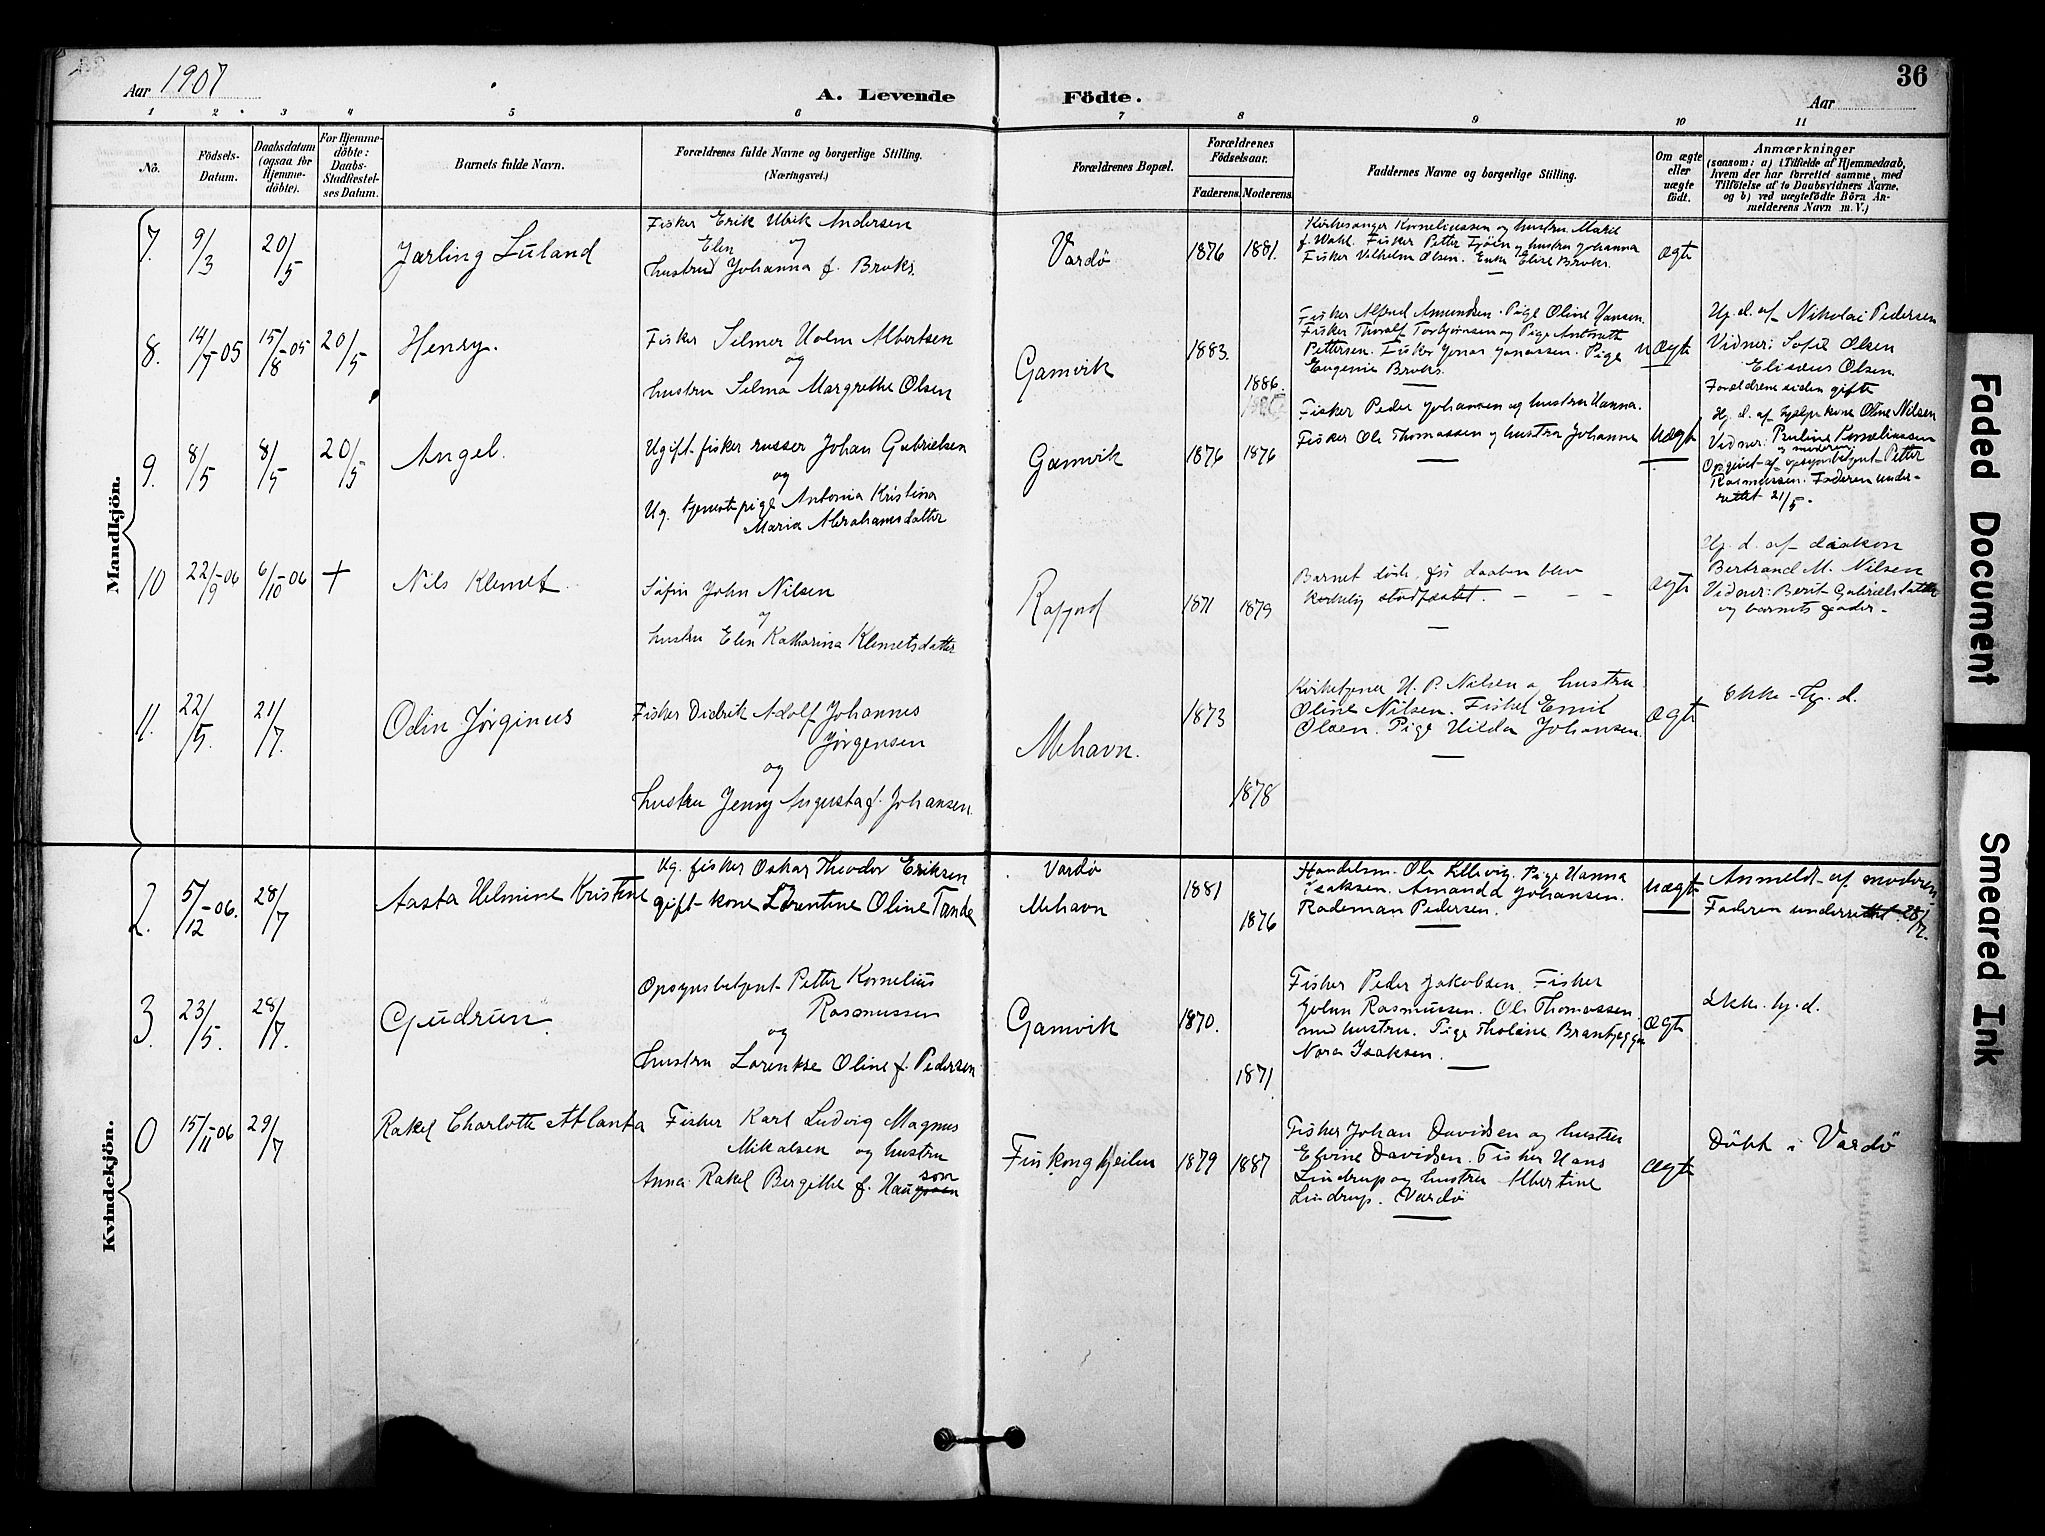 Aar 1907
A. Levende Födte.
36
Aar
1 2 3 4 5 6 7 8 9 10 11
No.
Födsels-Datum.
Daabsdatum (ogsaa for Hjemmedöbte).
For Hjemmedöbte: Daabs-Stadfæstelses Datum.
Barnets fulde Navn.
Forældrenes fulde Navne og borgerlige Stilling.
(Næringsvei.)
Forældrenes Bopæl.
Forældrenes Födselsaar.
Faderens. Moderens.
Faddernes Navne og borgerlige Stilling.
Om ægte eller uægte födt.
Anmærkninger
(saasom: a) i Tilfælde af Hjemmedaab, hvem der har forrettet samme, med Tilföielse af to Daabsvidners Navne, og b) ved uægtefödte Börn Anmelderens Navn m. V.)
Mandkjön.
7. 9/3 20/5 Jarling Luland
Fisker Erik Ulrik Andersen
og
hustru Elen Johanna f. Broks.
Vardø 1876 1881.
Kirkesanger Korneliussen og hustru Marie
f. Wahl. Fisker Petter Fjöln og hustru Johanna
Fisker Vilhelm Olsen. Enke Elise Broks.
ægte
8. 14/7-05 15/8-05 20/5 Henry.
Fisker Selmer Holm Albertsen
og
hustru Selma Margrethe Olsen
Gamvik 1883. 1886.
Fisker Alfred Amundsen. Pige Oline Hansen.
Fisker Thoralf Torbjørnsen og Pige
Pettersen. Fisker Jonas Jonassen. Pige
Eugenie Broks.
uægte
Hj. d. af Nikolai Pedersen
Vidner: Sofie Olsen
Eliseus Olsen
Forældrene siden gifte
9. 8/5 8/5 20/5 Angel.
Ugift fisker russer Johan Gabrielsen
og
Ug. tjenestepige Antonia Kristina
Maria Abrahamsdatter
Gamvik 1876 1876
Fisker Peder Johansen og hustru Hanna.
Fisker Ole Thomassen og hustru Johanna
uægte
Hj. d. af hjelpekone Oline Nilsen
Vidner: Pauline Korneliussen
og moderen
Opgivet af opsynsbetjent Petter
Rasmussen. Faderen under-
rettet 21/5.
10 22/9-06 6/10-06 + Nils Klemet
Søfin John Nilsen
og
hustru Elen Katharina Klemetsdatter
1871 1879
Barnet døde før daaben blev
kirkelig stadfæstet.
ægte
Hj. d. af diakon
Bertrand M. Nilsen
Vidner: Berit Gabrielsdatter
og barnets fader
11. 22/5. 21/7. Odin Jørginus
Fisker Didrik Adolf Johannes
Jørgensen
og
hustru Jenny Augusta f. Johansen.
Mehavn. 1873 1878
Kirketjener H. P. Nilsen og hustru
Oline Nilsen. Fisker Emil
Olsen. Pige Hilda Johansen.
ægte
Ikke hj. d.
Kvindekjön.
2. 5/12-06. 28/7 Aasta Helmine Kristine
Ug. fisker Oskar Theodor Eriksen
gift kone Lorentine Oline Tande
Vardø
Mehavn
1881 1876
Handelsm. Ole Lillevig. Pige Hanna
Isaksen. Amanda Johansen.
Rademan Pedersen.
uægte
Anmeldt af moderen
Faderen underrettet 28/7.
3. 23/5. 28/7. Gudrun
Opsynsbetjent Petter Kornelius
Rasmussen
og
hustru Lorentse Oline f. Pedersen
Gamvik 1870. 1871.
Fisker Peder Jakobsen. Fisker
Johan Rasmussen. Ole Thomassen
med hustru. Pige Tholine
Nora Isaksen.
ægte
Ikke hj. d.
0 15/11-06 29/7 Rakel Charlotte Atlanta
Fisker Karl Ludvig Magnus
Mikalsen og hustru
Anna Rakel Bergithe f. Hansson
Finkongkjeilen 1879 1887
Fisker Johan Davidsen og hustru
Elvine Davidsen. Fisker Hans
Lindrup og hustru Albertine
Lindrup. Vardø
ægte
Døbt i Vardø
Faded Document
Smeared Ink